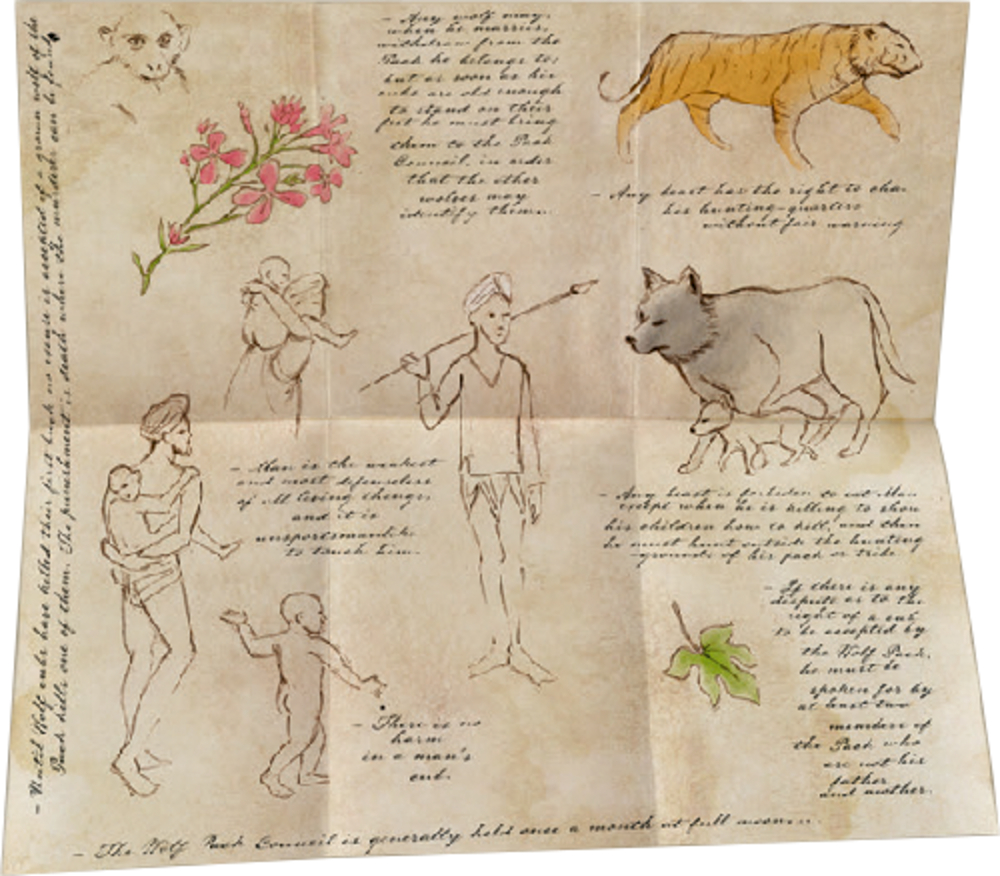 - Until Wolf cubs have killed their first buck no excuse is accepted if a grown wolf of the
Pack kills one of them. The punishment is death where the murderer can be found.
- Any wolf may,
when he marries,
withdraw from the
Pack he belongs to;
but as soon as his
cubs are old enough
to stand on their
feet he must bring
them to the Pack
Council, in order
that the other
wolves may
identify them.
- Any beast has the right to
his hunting-quarters
without fair warning
- Man is the weakest
and most defenseless
of all living things,
and it is
unsportsmanlike
to touch him.
- Any beast is forbidden to eat Man
except when he is killing to show
his children how to kill, and then
he must hunt outside the hunting
-grounds of his pack or tribe.
- If there is any
dispute as to the
right of a cub
to be accepted by
the Wolf Pack,
he must be
spoken for by
at least two
members of
the Pack who
are not his
father
and mother.
- There is no
harm
in a man's
cub.
- The Wolf Pack Council is generally held once a month at full moon.